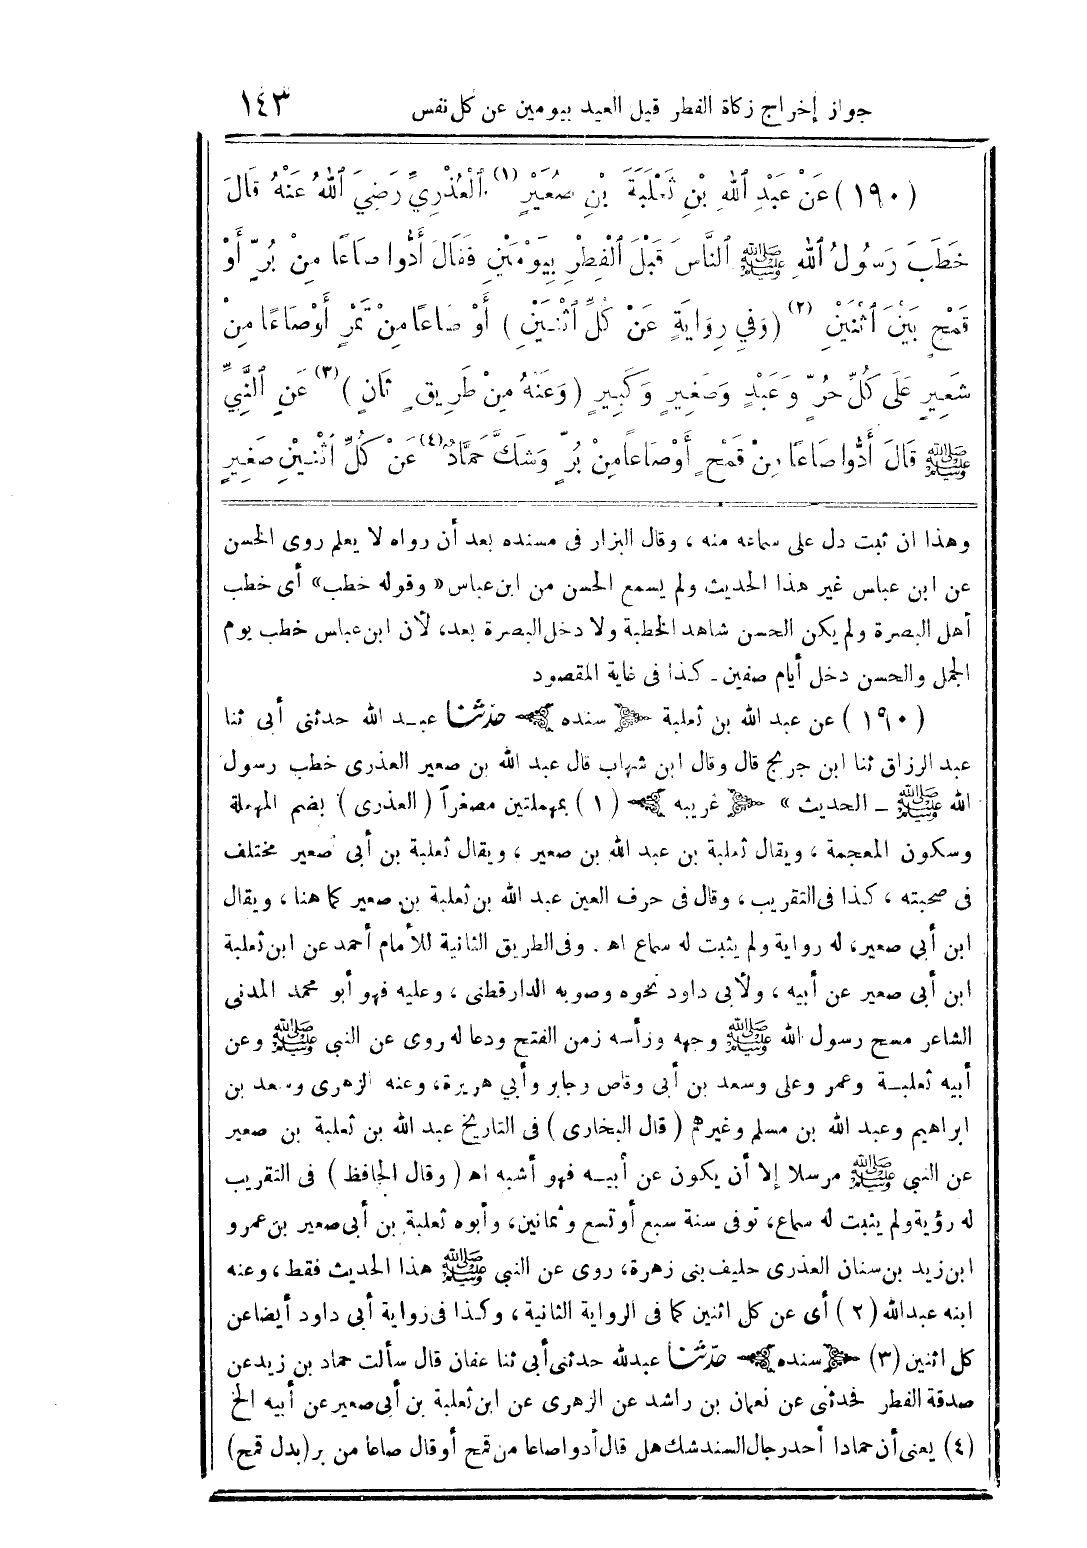 جواز إخراج زكاة الفطر قبل العيد بيومين عن كل نفس ١٤٣
(١٩٠) عَنْ عَبْدِ ٱللهِ بْنِ ثَعْلَبَةَ بْنِ صُعَيْرٍ (١) ٱلْعُذْرِيِّ رَضِيَ ٱللهُ عَنْهُ قَالَ
خَطَبَ رَسُولُ ٱللهِ ﷺ ٱلنَّاسَ قَبْلَ ٱلْفِطْرِ بِيَوْمَيْنِ فَقَالَ أَدُّوا صَاعًا مِنْ بُرٍّ أَوْ
قَمْحٍ بَيْنَ ٱثْنَيْنِ (٢) (وَفِي رِوَايَةٍ عَنْ كُلِّ ٱثْنَيْنِ) أَوْ صَاعًا مِنْ تَمْرٍ أَوْ صَاعًا مِنْ
شَعِيرٍ عَلَى كُلِّ حُرٍّ وَعَبْدٍ وَصَغِيرٍ وَكَبِيرٍ (وَعَنْهُ مِنْ طَرِيقٍ ثَانٍ) (٣) عَنِ ٱلنَّبِيِّ
ﷺ قَالَ أَدُّوا صَاعًا مِنْ قَمْحٍ أَوْ صَاعًا مِنْ بُرٍّ وَشَكَّ حَمَّادٌ (٤) عَنْ كُلِّ اثْنَيْنِ صَغِيرٍ
وهذا ان ثبت دل على سماعه منه ، وقال البزار فى مسنده بعد أن رواه لا يعلم روى الحسن
عن ابن عباس غير هذا الحديث ولم يسمع الحسن من ابن عباس « وقوله خطب » أى خطب
أهل البصرة ولم يكن الحسن شاهد الخطبة ولا دخل البصرة بعد، لأن ابن عباس خطب يوم
الجمل والحسن دخل أيام صفين ـ كذا فى غاية المقصود
(١٩٠) عن عبد الله بن ثعلبة سنده حدثنا عبد الله حدثنى أبى ثنا
عبد الرزاق ثنا ابن جريج قال وقال ابن شهاب قال عبد الله بن صعير العذرى خطب رسول
الله ﷺ ـ الحديث » غريبه (١) بمهملتين مصغراً (العذرى) بضم المهملة
وسكون المعجمة ، ويقال ثعلبة بن عبد الله بن صعير ، ويقال ثعلبة بن أبى صعير مختلف
فى صحبته ، كذا فى التقريب ، وقال فى حرف العين عبد الله بن ثعلبة بن صعير كما هنا ، ويقال
ابن أبي صعير، له رواية ولم يثبت له سماع اه . وفى الطريق الثانية للأمام أحمد عن ابن ثعلبة
ابن أبى صعير عن أبيه ، ولأبى داود نحوه وصوبه الدارقطنى ، وعليه فهو أبو محمد المدنى
الشاعر مسح رسول الله ﷺ وجهه ورأسه زمن الفتح ودعا له روى عن النبى ﷺ وعن
أبيه ثعلبة وعمر وعلى وسعد بن أبى وقاص وجابر وأبي هريرة، وعنه الزهرى وسعد بن
ابراهيم وعبد الله بن مسلم وغيرهم (قال البخارى) فى التاريخ عبد الله بن ثعلبة بن صعير
عن النبي ﷺ مرسلا إلا أن يكون عن أبيه فهو أشبه اه (وقال الحافظ) فى التقريب
له رؤية ولم يثبت له سماع، توفى سنة سبع أو تسع وثمانين، وأبوه ثعلبة بن أبى صعير بن عمرو
ابن زيد بن سنان العذرى حليف بنى زهرة، روى عن النبي ﷺ هذا الحديث فقط ، وعنه
ابنه عبدالله (٢) أى عن كل اثنين كما فى الرواية الثانية ، وكذا فى رواية أبى داود أيضا عن
كل اثنين (٣) سنده حدثنا عبدلله حدثنى أبى ثنا عفان قال سألت حماد بن زيد عن
صدقة الفطر فحدثنى عن نعمان بن راشد عن الزهرى عن ابن ثعلبة بن أبى صعير عن أبيه الخ
(٤) يعنى أن حمادا أحد رجال السند شك هل قال أدوا صاعا من قمح أو قال صاعا من بر (بدل قمح)